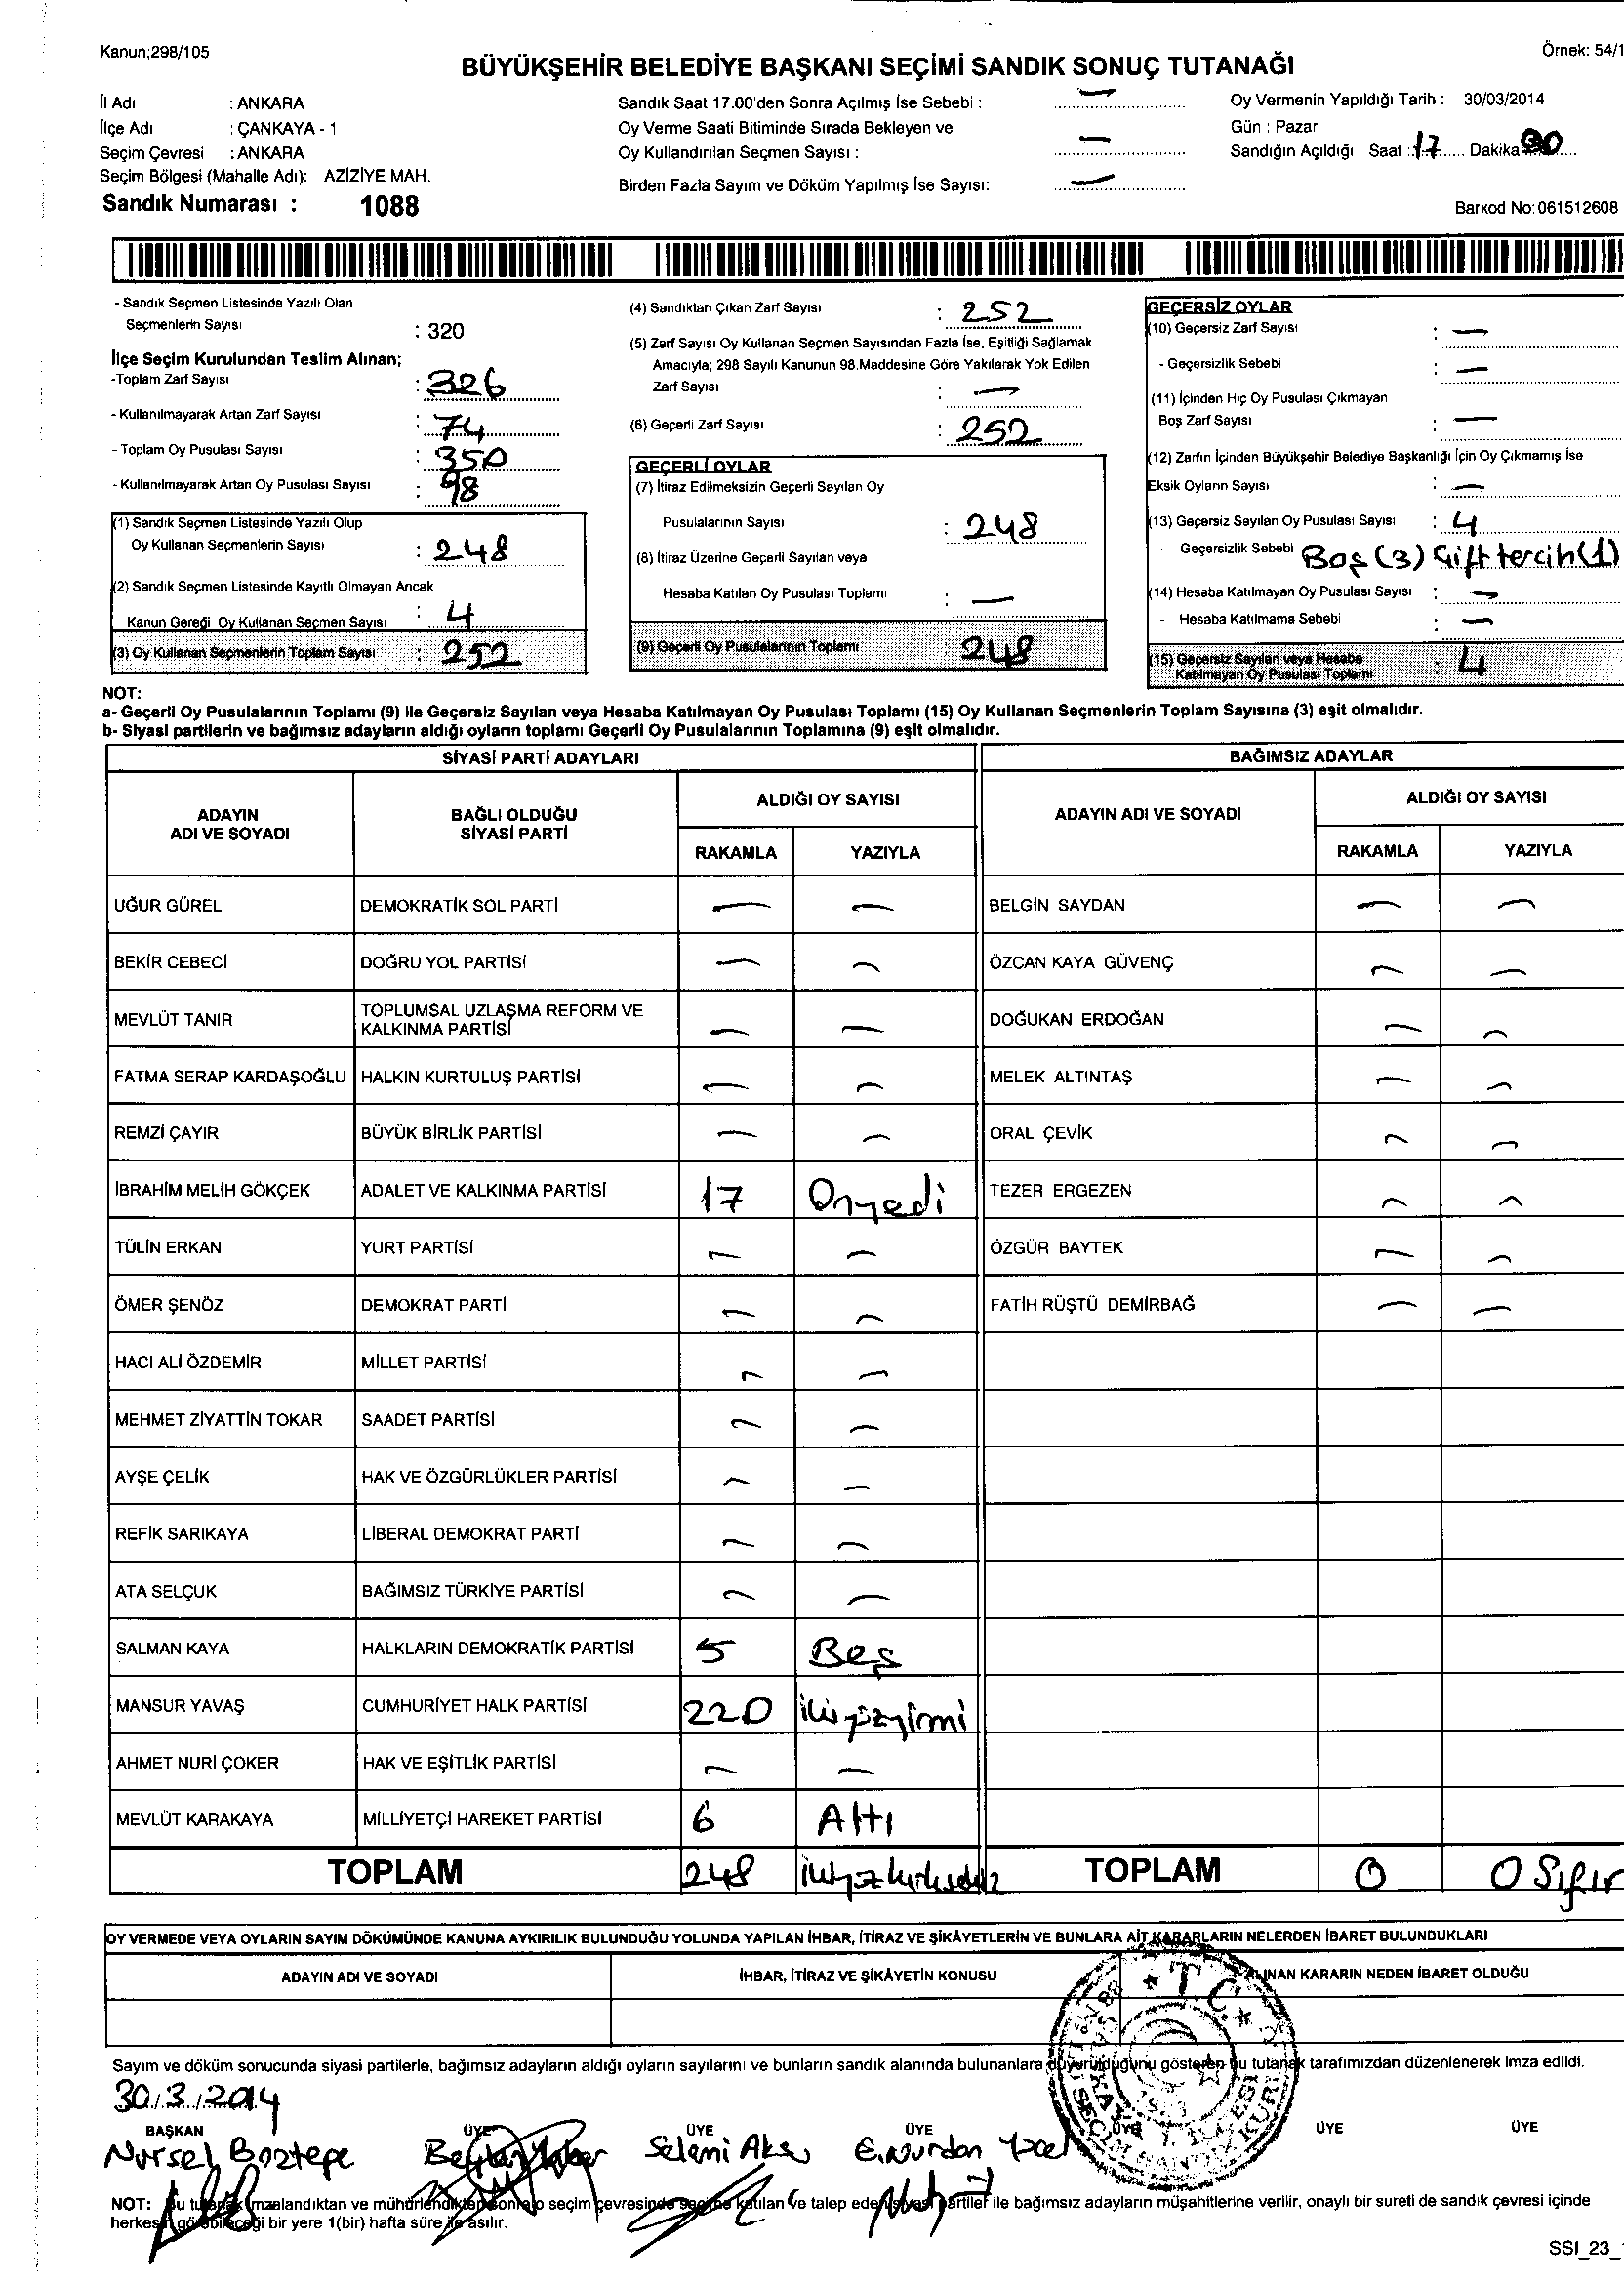 Kanun;298/105
Örnek: 54/1
BÜYÜKŞEHİR BELEDİYE BAŞKANI SEÇİMİ SANDIK SONUÇ TUTANAĞI
İl Adı : ANKARA
İlçe Adı : ÇANKAYA - 1
Seçim Çevresi : ANKARA
Seçim Bölgesi (Mahalle Adı): AZİZİYE MAH.
Sandık Numarası : 1088
Sandık Saat 17.00'den Sonra Açılmış İse Sebebi : —
Oy Verme Saati Bitiminde Sırada Bekleyen ve
Oy Kullandırılan Seçmen Sayısı : —
Birden Fazla Sayım ve Döküm Yapılmış İse Sayısı: —
Oy Vermenin Yapıldığı Tarih : 30/03/2014
Gün : Pazar
Sandığın Açıldığı Saat : 17 Dakika
Barkod No:061512608
- Sandık Seçmen Listesinde Yazılı Olan
Seçmenlerin Sayısı : 320
İlçe Seçim Kurulundan Teslim Alınan;
-Toplam Zarf Sayısı : 326
- Kullanılmayarak Artan Zarf Sayısı : 74
- Toplam Oy Pusulası Sayısı : 350
- Kullanılmayarak Artan Oy Pusulası Sayısı : 98
(1) Sandık Seçmen Listesinde Yazılı Olup
Oy Kullanan Seçmenlerin Sayısı : 248
(2) Sandık Seçmen Listesinde Kayıtlı Olmayan Ancak
Kanun Gereği Oy Kullanan Seçmen Sayısı : 4
(3) Oy Kullanan Seçmenlerin Toplam Sayısı : 252
(4) Sandıktan Çıkan Zarf Sayısı : 252
(5) Zarf Sayısı Oy Kullanan Seçmen Sayısından Fazla İse, Eşitliği Sağlamak
Amacıyla; 298 Sayılı Kanunun 98.Maddesine Göre Yakılarak Yok Edilen
Zarf Sayısı : —
(6) Geçerli Zarf Sayısı : 252
GEÇERLİ OYLAR
(7) İtiraz Edilmeksizin Geçerli Sayılan Oy
Pusulalarının Sayısı : 248
(8) İtiraz Üzerine Geçerli Sayılan veya
Hesaba Katılan Oy Pusulası Toplamı : —
(9) Geçerli Oy Pusulalarının Toplamı 248
GEÇERSİZ OYLAR
(10) Geçersiz Zarf Sayısı : —
- Geçersizlik Sebebi : —
(11) İçinden Hiç Oy Pusulası Çıkmayan
Boş Zarf Sayısı : —
(12) Zarfın İçinden Büyükşehir Belediye Başkanlığı İçin Oy Çıkmamış İse
Eksik Oyların Sayısı : —
(13) Geçersiz Sayılan Oy Pusulası Sayısı : 4
- Geçersizlik Sebebi Boş (3) Çift tercih (1)
(14) Hesaba Katılmayan Oy Pusulası Sayısı : —
- Hesaba Katılmama Sebebi : —
(15) Geçersiz Sayılan veya Hesaba
Katılmayan Oy Pusulası Toplamı : 4
NOT:
a- Geçerli Oy Pusulalarının Toplamı (9) ile Geçersiz Sayılan veya Hesaba Katılmayan Oy Pusulası Toplamı (15) Oy Kullanan Seçmenlerin Toplam Sayısına (3) eşit olmalıdır.
b- Siyasi partilerin ve bağımsız adayların aldığı oyların toplamı Geçerli Oy Pusulalarının Toplamına (9) eşit olmalıdır.
SİYASİ PARTİ ADAYLARI BAĞIMSIZ ADAYLAR
ADAYIN ADI VE SOYADI BAĞLI OLDUĞU SİYASİ PARTİ ALDIĞI OY SAYISI ADAYIN ADI VE SOYADI ALDIĞI OY SAYISI
RAKAMLA YAZIYLA RAKAMLA YAZIYLA
UĞUR GÜREL DEMOKRATİK SOL PARTİ — — BELGİN SAYDAN — —
BEKİR CEBECİ DOĞRU YOL PARTİSİ — — ÖZCAN KAYA GÜVENÇ — —
MEVLÜT TANIR TOPLUMSAL UZLAŞMA REFORM VE KALKINMA PARTİSİ — — DOĞUKAN ERDOĞAN — —
FATMA SERAP KARDAŞOĞLU HALKIN KURTULUŞ PARTİSİ — — MELEK ALTINTAŞ — —
REMZİ ÇAYIR BÜYÜK BİRLİK PARTİSİ — — ORAL ÇEVİK — —
İBRAHİM MELİH GÖKÇEK ADALET VE KALKINMA PARTİSİ 17 Onyedi TEZER ERGEZEN — —
TÜLİN ERKAN YURT PARTİSİ — — ÖZGÜR BAYTEK — —
ÖMER ŞENÖZ DEMOKRAT PARTİ — — FATİH RÜŞTÜ DEMİRBAĞ — —
HACI ALİ ÖZDEMİR MİLLET PARTİSİ — —
MEHMET ZİYATTİN TOKAR SAADET PARTİSİ — —
AYŞE ÇELİK HAK VE ÖZGÜRLÜKLER PARTİSİ — —
REFİK SARIKAYA LİBERAL DEMOKRAT PARTİ — —
ATA SELÇUK BAĞIMSIZ TÜRKİYE PARTİSİ — —
SALMAN KAYA HALKLARIN DEMOKRATİK PARTİSİ 5 Beş
MANSUR YAVAŞ CUMHURİYET HALK PARTİSİ 220 ikiyüzyirmi
AHMET NURİ ÇOKER HAK VE EŞİTLİK PARTİSİ — —
MEVLÜT KARAKAYA MİLLİYETÇİ HAREKET PARTİSİ 6 Altı
TOPLAM 248 ikiyüzkırksekiz TOPLAM 0 0 Sıfır
OY VERMEDE VEYA OYLARIN SAYIM DÖKÜMÜNDE KANUNA AYKIRILIK BULUNDUĞU YOLUNDA YAPILAN İHBAR, İTİRAZ VE ŞİKÂYETLERİN VE BUNLARA AİT KARARLARIN NELERDEN İBARET BULUNDUKLARI
ADAYIN ADI VE SOYADI İHBAR, İTİRAZ VE ŞİKÂYETİN KONUSU ALINAN KARARIN NEDEN İBARET OLDUĞU
T.C.
Sayım ve döküm sonucunda siyasi partilerle, bağımsız adayların aldığı oyların sayılarını ve bunların sandık alanında bulunanlara duyurulduğunu gösteren bu tutanak tarafımızdan düzenlenerek imza edildi.
30/3/2014
BAŞKAN ÜYE ÜYE ÜYE ÜYE ÜYE ÜYE
Nursel Boztepe Selami Aksu E.Nurdan Yücel
NOT: Bu tutanak imzalandıktan ve mühürlendikten sonra o seçim çevresinde seçime katılan ve talep eden siyasi partiler ile bağımsız adayların müşahitlerine verilir, onaylı bir sureti de sandık çevresi içinde
herkesin görebileceği bir yere 1(bir) hafta süre ile asılır.
SSI_23_